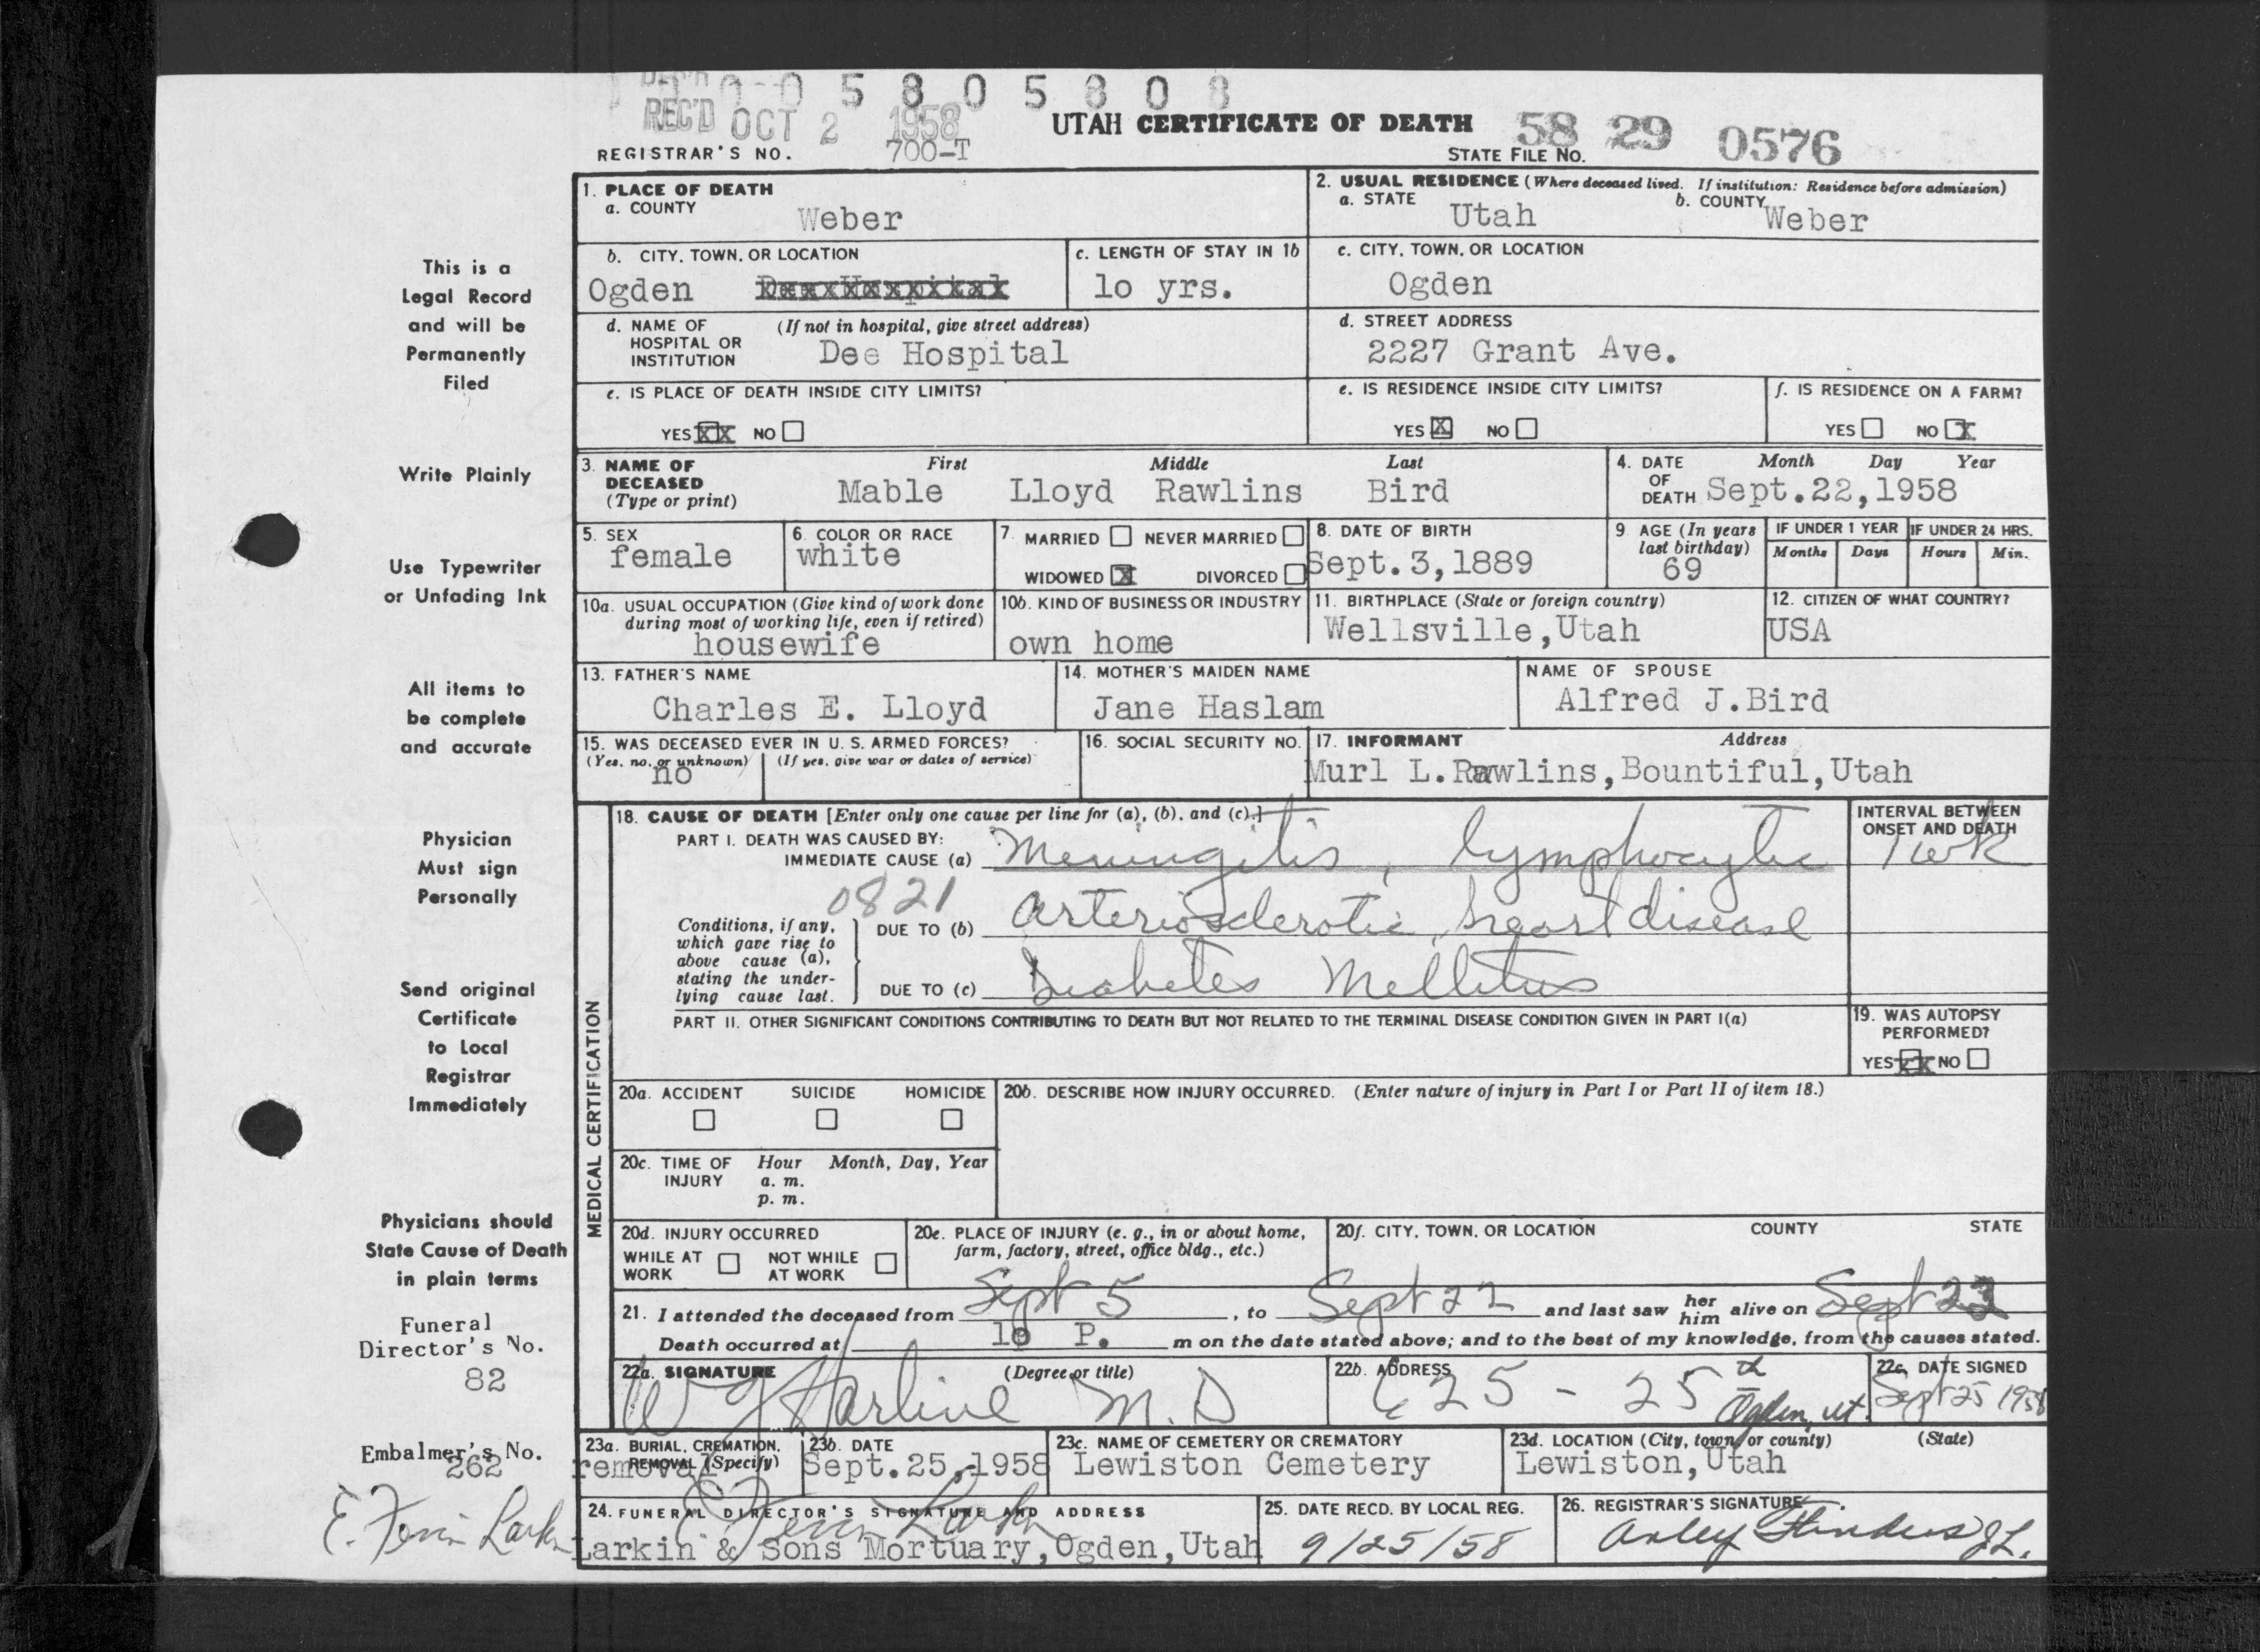 REC'D
0 5 8 0 5 8 0 8
REC'D OCT 2 1958
UTAH CERTIFICATE OF DEATH 58 29 0576
REGISTRAR'S NO. 700-T
STATE FILE NO.
1. PLACE OF DEATH
a. COUNTY Weber
2. USUAL RESIDENCE (Where deceased lived. If institution: Residence before admission)
a. STATE Utah b. COUNTY Weber
b. CITY, TOWN, OR LOCATION Ogden
c. LENGTH OF STAY IN 1b lo yrs.
c. CITY, TOWN, OR LOCATION Ogden
d. NAME OF HOSPITAL OR INSTITUTION (If not in hospital, give street address) Dee Hospital
d. STREET ADDRESS 2227 Grant Ave.
e. IS PLACE OF DEATH INSIDE CITY LIMITS?
YES XX NO
e. IS RESIDENCE INSIDE CITY LIMITS?
YES X NO
f. IS RESIDENCE ON A FARM?
YES NO X
3. NAME OF DECEASED (Type or print)
First Middle Last
Mable Lloyd Rawlins Bird
4. DATE OF DEATH Month Day Year
Sept.22,1958
5. SEX female
6. COLOR OR RACE white
7. MARRIED NEVER MARRIED
WIDOWED X DIVORCED
8. DATE OF BIRTH Sept.3,1889
9 AGE (In years last birthday) 69
IF UNDER 1 YEAR Months Days
IF UNDER 24 HRS. Hours Min.
10a. USUAL OCCUPATION (Give kind of work done during most of working life, even if retired) housewife
10b. KIND OF BUSINESS OR INDUSTRY own home
11. BIRTHPLACE (State or foreign country) Wellsville,Utah
12. CITIZEN OF WHAT COUNTRY? USA
13. FATHER'S NAME Charles E. Lloyd
14. MOTHER'S MAIDEN NAME Jane Haslam
NAME OF SPOUSE Alfred J.Bird
15. WAS DECEASED EVER IN U. S. ARMED FORCES?
(Yes, no, or unknown) no (If yes, give war or dates of service)
16. SOCIAL SECURITY NO.
17. INFORMANT Address
Murl L.Rawlins,Bountiful,Utah
MEDICAL CERTIFICATION
18. CAUSE OF DEATH [Enter only one cause per line for (a), (b), and (c).]
PART I. DEATH WAS CAUSED BY:
IMMEDIATE CAUSE (a) Meningitis, lymphocytic
INTERVAL BETWEEN ONSET AND DEATH
1 wk
0821
Conditions, if any, which gave rise to above cause (a), stating the underlying cause last.
DUE TO (b) arteriosclerotic heart disease
DUE TO (c) Diabetes Mellitus
PART II. OTHER SIGNIFICANT CONDITIONS CONTRIBUTING TO DEATH BUT NOT RELATED TO THE TERMINAL DISEASE CONDITION GIVEN IN PART I(a)
19. WAS AUTOPSY PERFORMED?
YES XX NO
20a. ACCIDENT SUICIDE HOMICIDE
20b. DESCRIBE HOW INJURY OCCURRED. (Enter nature of injury in Part I or Part II of item 18.)
20c. TIME OF INJURY Hour Month, Day, Year
a. m.
p. m.
20d. INJURY OCCURRED
WHILE AT WORK NOT WHILE AT WORK
20e. PLACE OF INJURY (e. g., in or about home, farm, factory, street, office bldg., etc.)
20f. CITY, TOWN, OR LOCATION COUNTY STATE
21. I attended the deceased from Sept 5, to Sept 22 and last saw her him alive on Sept 22
Death occurred at 10 P. m on the date stated above; and to the best of my knowledge, from the causes stated.
22a. SIGNATURE (Degree or title)
W J Harline M.D
22b. ADDRESS 625 - 25th Ogden, Ut.
22c. DATE SIGNED Sept 25 1958
23a. BURIAL, CREMATION, REMOVAL (Specify) removal
23b. DATE Sept.25,1958
23c. NAME OF CEMETERY OR CREMATORY Lewiston Cemetery
23d. LOCATION (City, town, or county) (State)
Lewiston,Utah
24. FUNERAL DIRECTOR'S SIGNATURE AND ADDRESS
Larkin & Sons Mortuary,Ogden,Utah
25. DATE RECD. BY LOCAL REG. 9/25/58
26. REGISTRAR'S SIGNATURE
This is a
Legal Record
and will be
Permanently
Filed
Write Plainly
Use Typewriter
or Unfading Ink
All items to
be complete
and accurate
Physician
Must sign
Personally
Send original
Certificate
to Local
Registrar
Immediately
Physicians should
State Cause of Death
in plain terms
Funeral
Director's No.
82
Embalmer's No.
262
E. Ferrin Larkin